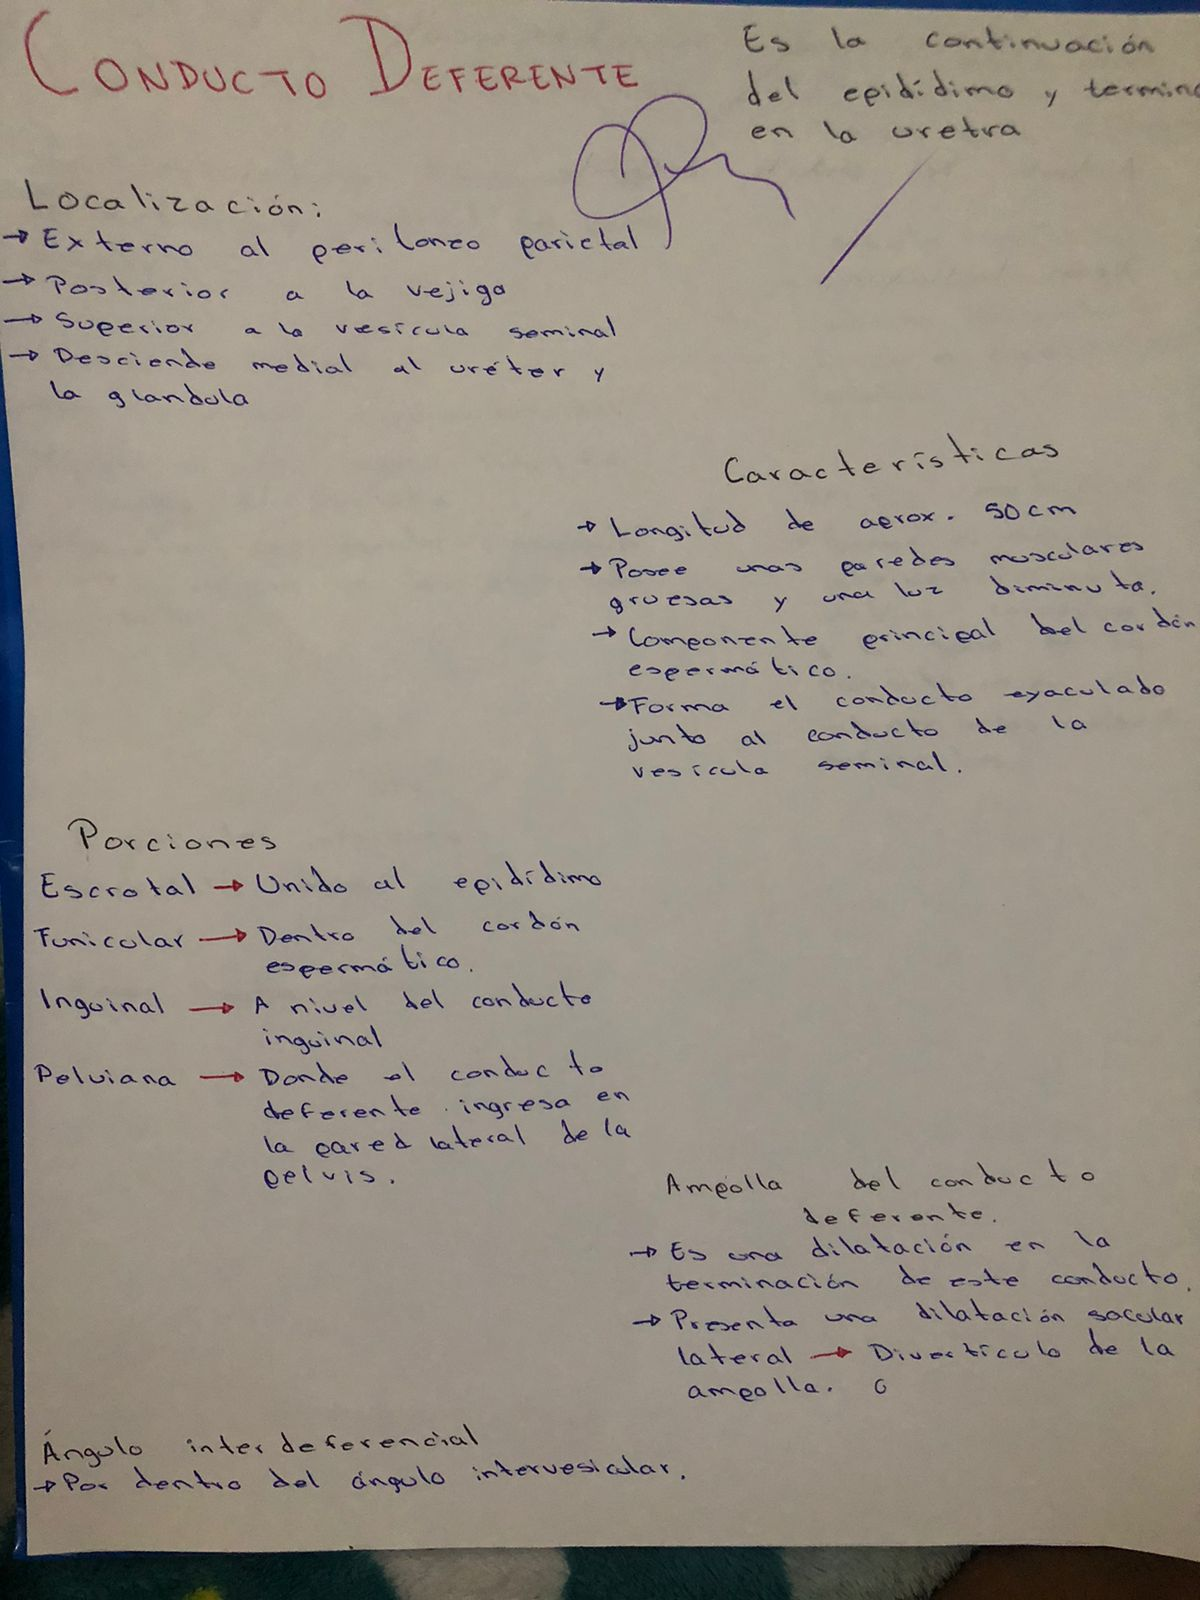 CONDUCTO DEFERENTE
Es la continuación
del epidídimo y termina
en la uretra
Localización:
→ Externo al peritoneo parietal
→ Posterior a la vejiga
→ Superior a la vesícula seminal
→ Desciende medial al uréter y
la glandula
Características
→ Longitud de aprox. 50cm
→ Posee unas paredes musculares
gruesas y una luz diminuta.
→ Componente principal del cordón
espermático.
→ Forma el conducto eyaculado
junto al conducto de la
vesícula seminal.
Porciones
Escrotal → Unido al epidídimo
Funicular → Dentro del cordón
espermático.
Inguinal → A nivel del conducto
inguinal
Pelviana → Donde el conducto
deferente ingresa en
la pared lateral de la
pelvis.
Ampolla del conducto
deferente.
→ Es una dilatación en la
terminación de este conducto.
→ Presenta una dilatación sacular
lateral → Divertículo de la
ampolla.
Ángulo interdeferencial
→ Por dentro del ángulo intervesicular.